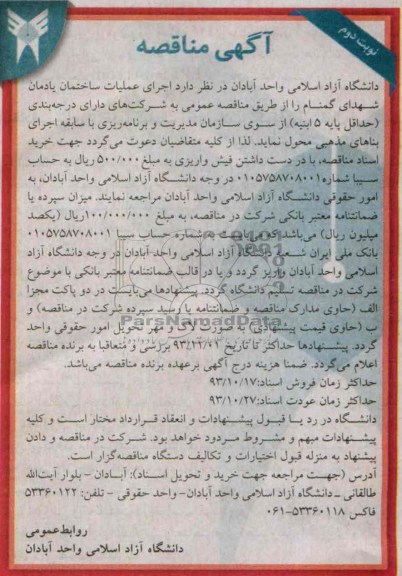 نوبت دوم
آگهی مناقصه
دانشگاه آزاد اسلامی واحد آبادان در نظر دارد اجرای عملیات ساختمان یادمان
شهدای گمنام را از طریق مناقصه عمومی به شرکت‌های دارای درجه‌بندی
(حداقل پایه ۵ ابنیه) از سوی سازمان مدیریت و برنامه‌ریزی با سابقه اجرای
بناهای مذهبی محول نماید. لذا از کلیه متقاضیان دعوت می‌گردد جهت خرید
اسناد مناقصه، با در دست داشتن فیش واریزی به مبلغ ۵۰۰/۰۰۰ ریال به حساب
سیبا شماره ۰۱۰۵۷۵۸۷۰۸۰۰۱ در وجه دانشگاه آزاد اسلامی واحد آبادان، به
امور حقوقی دانشگاه آزاد اسلامی واحد آبادان مراجعه نمایند. میزان سپرده یا
ضمانتنامه معتبر بانکی شرکت در مناقصه، به مبلغ ۱۰۰/۰۰۰/۰۰۰ ریال (یکصد
میلیون ریال) می‌باشد که می‌بایست به شماره حساب سیبا ۰۱۰۵۷۵۸۷۰۸۰۰۱
بانک ملی ایران شعبه دانشگاه آزاد اسلامی واحد آبادان در وجه دانشگاه آزاد
اسلامی واحد آبادان واریز گردد و یا در قالب ضمانتنامه معتبر بانکی با موضوع
شرکت در مناقصه تسلیم دانشگاه گردد. پیشنهادها می‌بایست در دو پاکت مجزا
الف (حاوی مدارک مناقصه و ضمانتنامه یا رسید سپرده شرکت در مناقصه) و
ب (حاوی قیمت پیشنهادی) به صورت لاک و مهر تحویل امور حقوقی واحد
گردد. پیشنهادها حداکثر تا تاریخ ۹۳/۱۱/۰۴ بررسی و متعاقبا به برنده مناقصه
اعلام می‌گردد. ضمنا هزینه درج آگهی برعهده برنده مناقصه می‌باشد.
حداکثر زمان فروش اسناد: ۹۳/۱۰/۱۷
حداکثر زمان عودت اسناد: ۹۳/۱۰/۲۷
دانشگاه در رد یا قبول پیشنهادات و انعقاد قرارداد مختار است و کلیه
پیشنهادات مبهم و مشروط مردود خواهد بود. شرکت در مناقصه و دادن
پیشنهاد به منزله قبول اختیارات و تکالیف دستگاه مناقصه‌گزار است.
آدرس (جهت مراجعه جهت خرید و تحویل اسناد): آبادان - بلوار آیت‌الله
طالقانی - دانشگاه آزاد اسلامی واحد آبادان - واحد حقوقی - تلفن: ۵۳۳۶۰۱۲۲
فاکس ۵۳۳۶۰۱۱۸-۰۶۱
روابط‌عمومی
دانشگاه آزاد اسلامی واحد آبادان
ParsNamadData